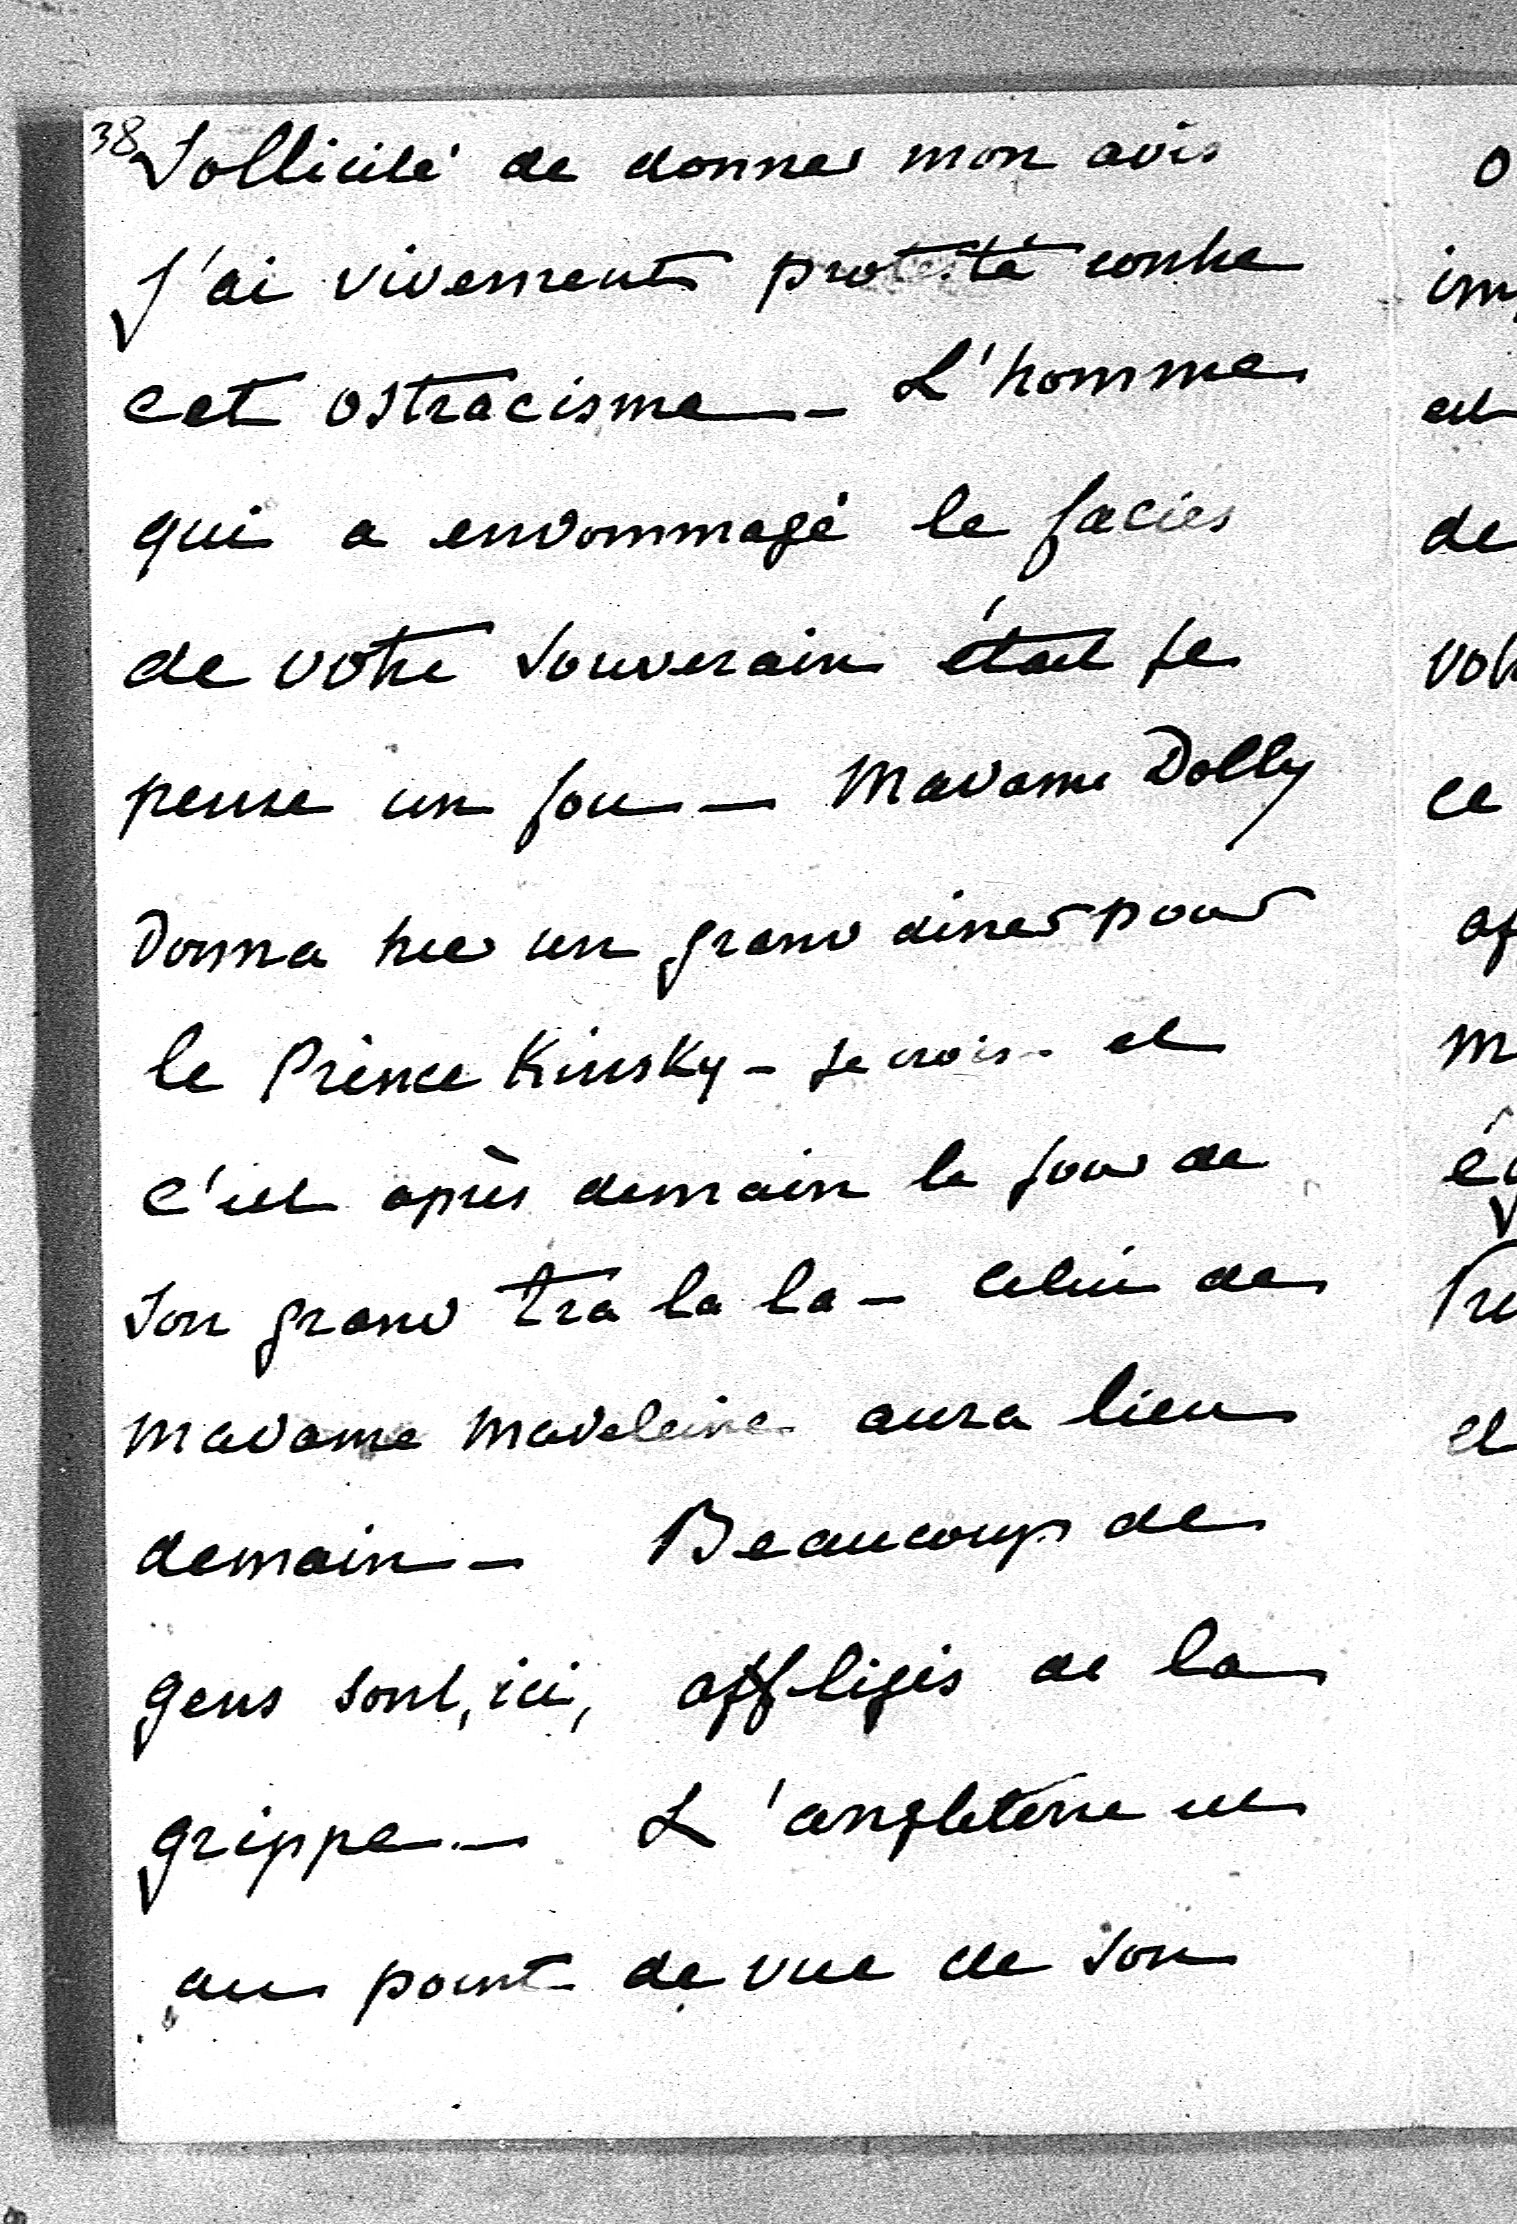 38
Sollicité de donner mon avis
J'ai vivement protesté contre
cet ostracisme — L'homme
qui a endommagé le facies
de votre Souverain était je
pense un fou — Madame Dolly
Donna hier un grand diner pour
le Prince Kinsky - je crois - et
c'est après demain le jour de
Son grand tra la la - celui de
Madame Madeleine aura lieu
demain — Beaucoup de
gens sont, ici, affligés de la
grippe — L'angleterre est
au point de vue de son